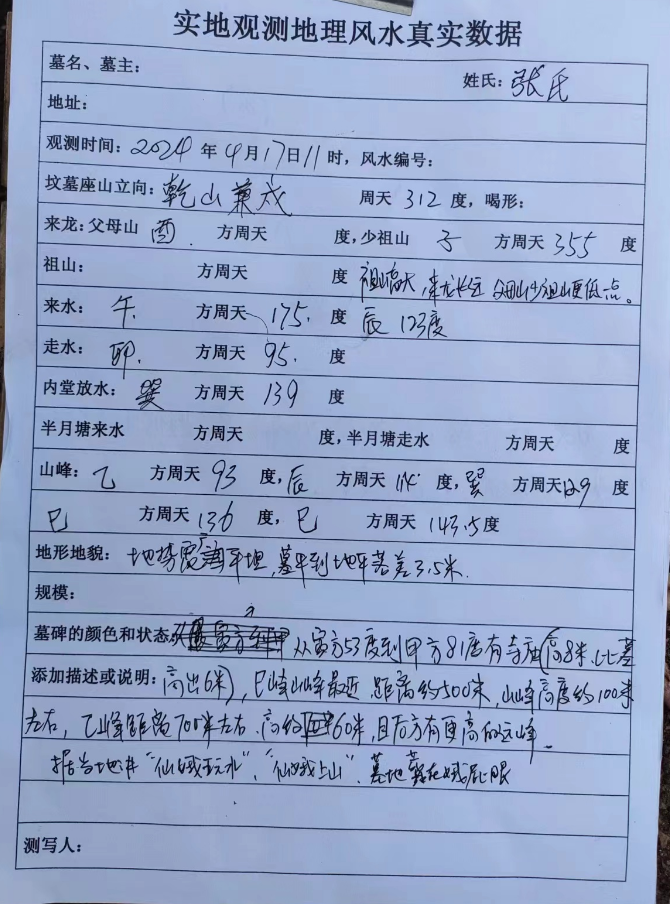 实地观测地理风水真实数据
墓名、墓主： 姓氏：张氏
地址：
观测时间：2024年4月17日11时，风水编号：
坟墓座山立向：乾山兼戌 周天312度，喝形：
来龙：父母山 酉 方周天 度，少祖山 子 方周天355度
祖山： 方周天 度 祖山高大，来龙长远 父母山少祖山更低一点。
来水：午. 方周天175.度 辰 123度
走水：卯. 方周天95.度
内堂放水：巽 方周天139度
半月塘来水 方周天 度，半月塘走水 方周天 度
山峰：乙 方周天93度，辰 方周天114°度，巽 方周天129度
巳 方周天136度，巳 方周天143.5度
地形地貌：地势 平坦，墓 到地 落差3.5米.
规模：
墓碑的颜色和状态： 从寅方53度到甲方81度有寺庙(高8米.比墓
添加描述或说明：高出6米)，巳峰山峰最近，距离约500米，山峰高度约100米
左右，乙峰距离700米左右.高约60米，且后方有更高的远峰.
据当地 "仙娥玩水"，"仙娥上山"．墓地葬在娥屁眼
测写人：